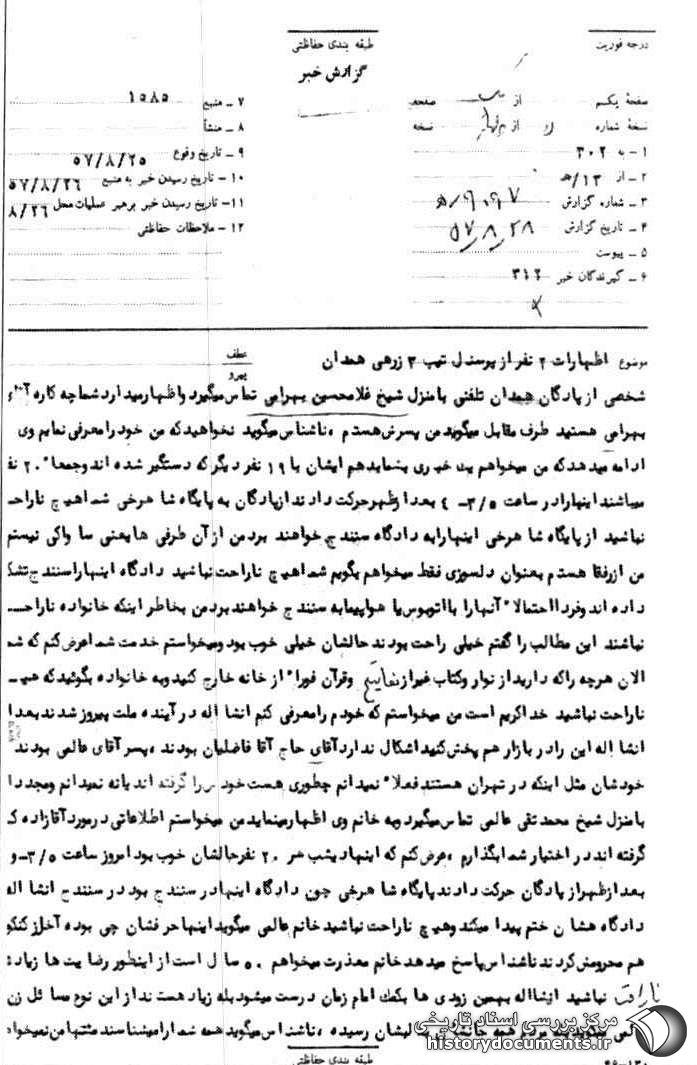 درجه فوریت
طبقه بندی حفاظتی
گزارش خبر
صفحهٔ یکم از صفحه
نسخهٔ شماره از نسخه
۱ – به ۳۰۲
۲ – از ۱۳/هـ
۳ – شماره گزارش
۴ – تاریخ گزارش ۵۷/۸/۲۸
۵ – پیوست
۶ – گیرندگان خبر ۳۱۲
۷ – منبع ۱۵۸۵
۸ – منشأ
۹ – تاریخ وقوع ۵۷/۸/۲۵
۱۰ – تاریخ رسیدن خبر به منبع ۵۷/۸/۲۶
۱۱– تاریخ رسیدن خبر برهبر عملیات محل ۸/۲۶
۱۲ – ملاحظات حفاظتی
موضوع اظهارات ۲ نفر از پرسنل تیپ ۳ زرهی همدان
عطف
پیرو
شخصی از پادگان همدان تلفنی با منزل شیخ غلامحسین بهرامی تماس میگیرد واظهارمیدارد شما چه کاره آقای
بهرامی هستید طرف مقابل میگوید من پسرش هستم ، ناشناس میگوید نخواهید که من خود را معرفی نمایم وی
ادامه میدهد که من میخواهم یک خبری بشما بدهم ایشان با ۱۹ نفر دیگر که دستگیر شده اند وجمعا" ۲۰ نفر
میباشند اینهارا در ساعت ۳/۵– ۴ بعد از ظهر حرکت دادند از پادگان به پایگاه شاهرخی شما هیچ ناراحت
نباشید از پایگاه شاهرخی اینها را به دادگاه سنندج خواهند برد من از آن طرفی ها یعنی ساواکی نیستم
من از رفقا هستم بعنوان دلسوزی فقط میخواهم بگویم شما هیچ ناراحت نباشید دادگاه اینها را سنندج تشک
داده اند وفردا احتمالا" آنها را با اتوبوس یا هواپیما به سنندج خواهند برد من بخاطر اینکه خانواده ناراحت
نباشند این مطالب را گفتم خیلی راحت بودند حالشان خیلی خوب بود ومیخواستم خدمت شما عرض کنم که شما
الان هرچه را که دارید از نوار وکتاب غیر از مفاتیح وقرآن فورا" از خانه خارج کنید وبه خانواده بگوئید که هیچ
ناراحت نباشید خدا کریم است من میخواستم که خودم را معرفی کنم انشا اله در آینده ملت پیروز شدند بعدا
انشا اله این را در بازار هم پخش کنید اشکال ندارد آقای حاج آقا فاضلیان بودند ، پسر آقای عالمی بودند
خودشان مثل اینکه در تهران هستند فعلا" نمیدانم چطوری هست خودش را گرفته اند یا نه نمیدانم ومجددا
با منزل شیخ محمد تقی عالمی تماس میگیرد وبه خانم وی اظهار مینماید من میخواستم اطلاعاتی در مورد آقازاده که
گرفته اند در اختیار شما بگذارم ، عرض کنم که اینها دیشب هر ۲۰ نفر حالشان خوب بود امروز ساعت ۳/۵– و
بعد از ظهر از پادگان حرکت دادند پایگاه شاهرخی چون دادگاه اینها در سنندج بود در سنندج انشا اله
دادگاه هشان ختم پیدا میکند وهیچ ناراحت نباشید خانم عالمی میگوید اینها حرفشان چی بوده آخر از کنکور
هم محرومش کردند ناشناس پاسخ میدهد خانم معذرت میخواهم ۵۰ سال است از اینطور رضایت ها زیاد
ناراحت نباشید انشااله بهمین زودی ها بکمک امام زمان درست میشود بله زیاد هستند از این نوع مسائل زن
میگوید همه رسیده ، ناشناس میگوید همه شما را میشناسند منتها من نمیخواهم
طبقه بندی حفاظتی
مرکز بررسی اسناد تاریخی
historydocuments.ir